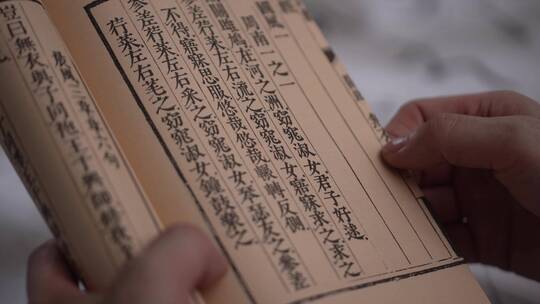 國風一
周南一之一
在河之洲窈窕淑女君子好逑
荇菜左右流之窈窕淑女寤寐求之求之
不得寤寐思服悠哉悠哉輾轉反側參差
荇菜左右采之窈窕淑女琴瑟友之參差
荇菜左右芼之窈窕淑女鐘鼓樂之
晨風三章章六句
豈曰無衣與子同袍王于興師脩我